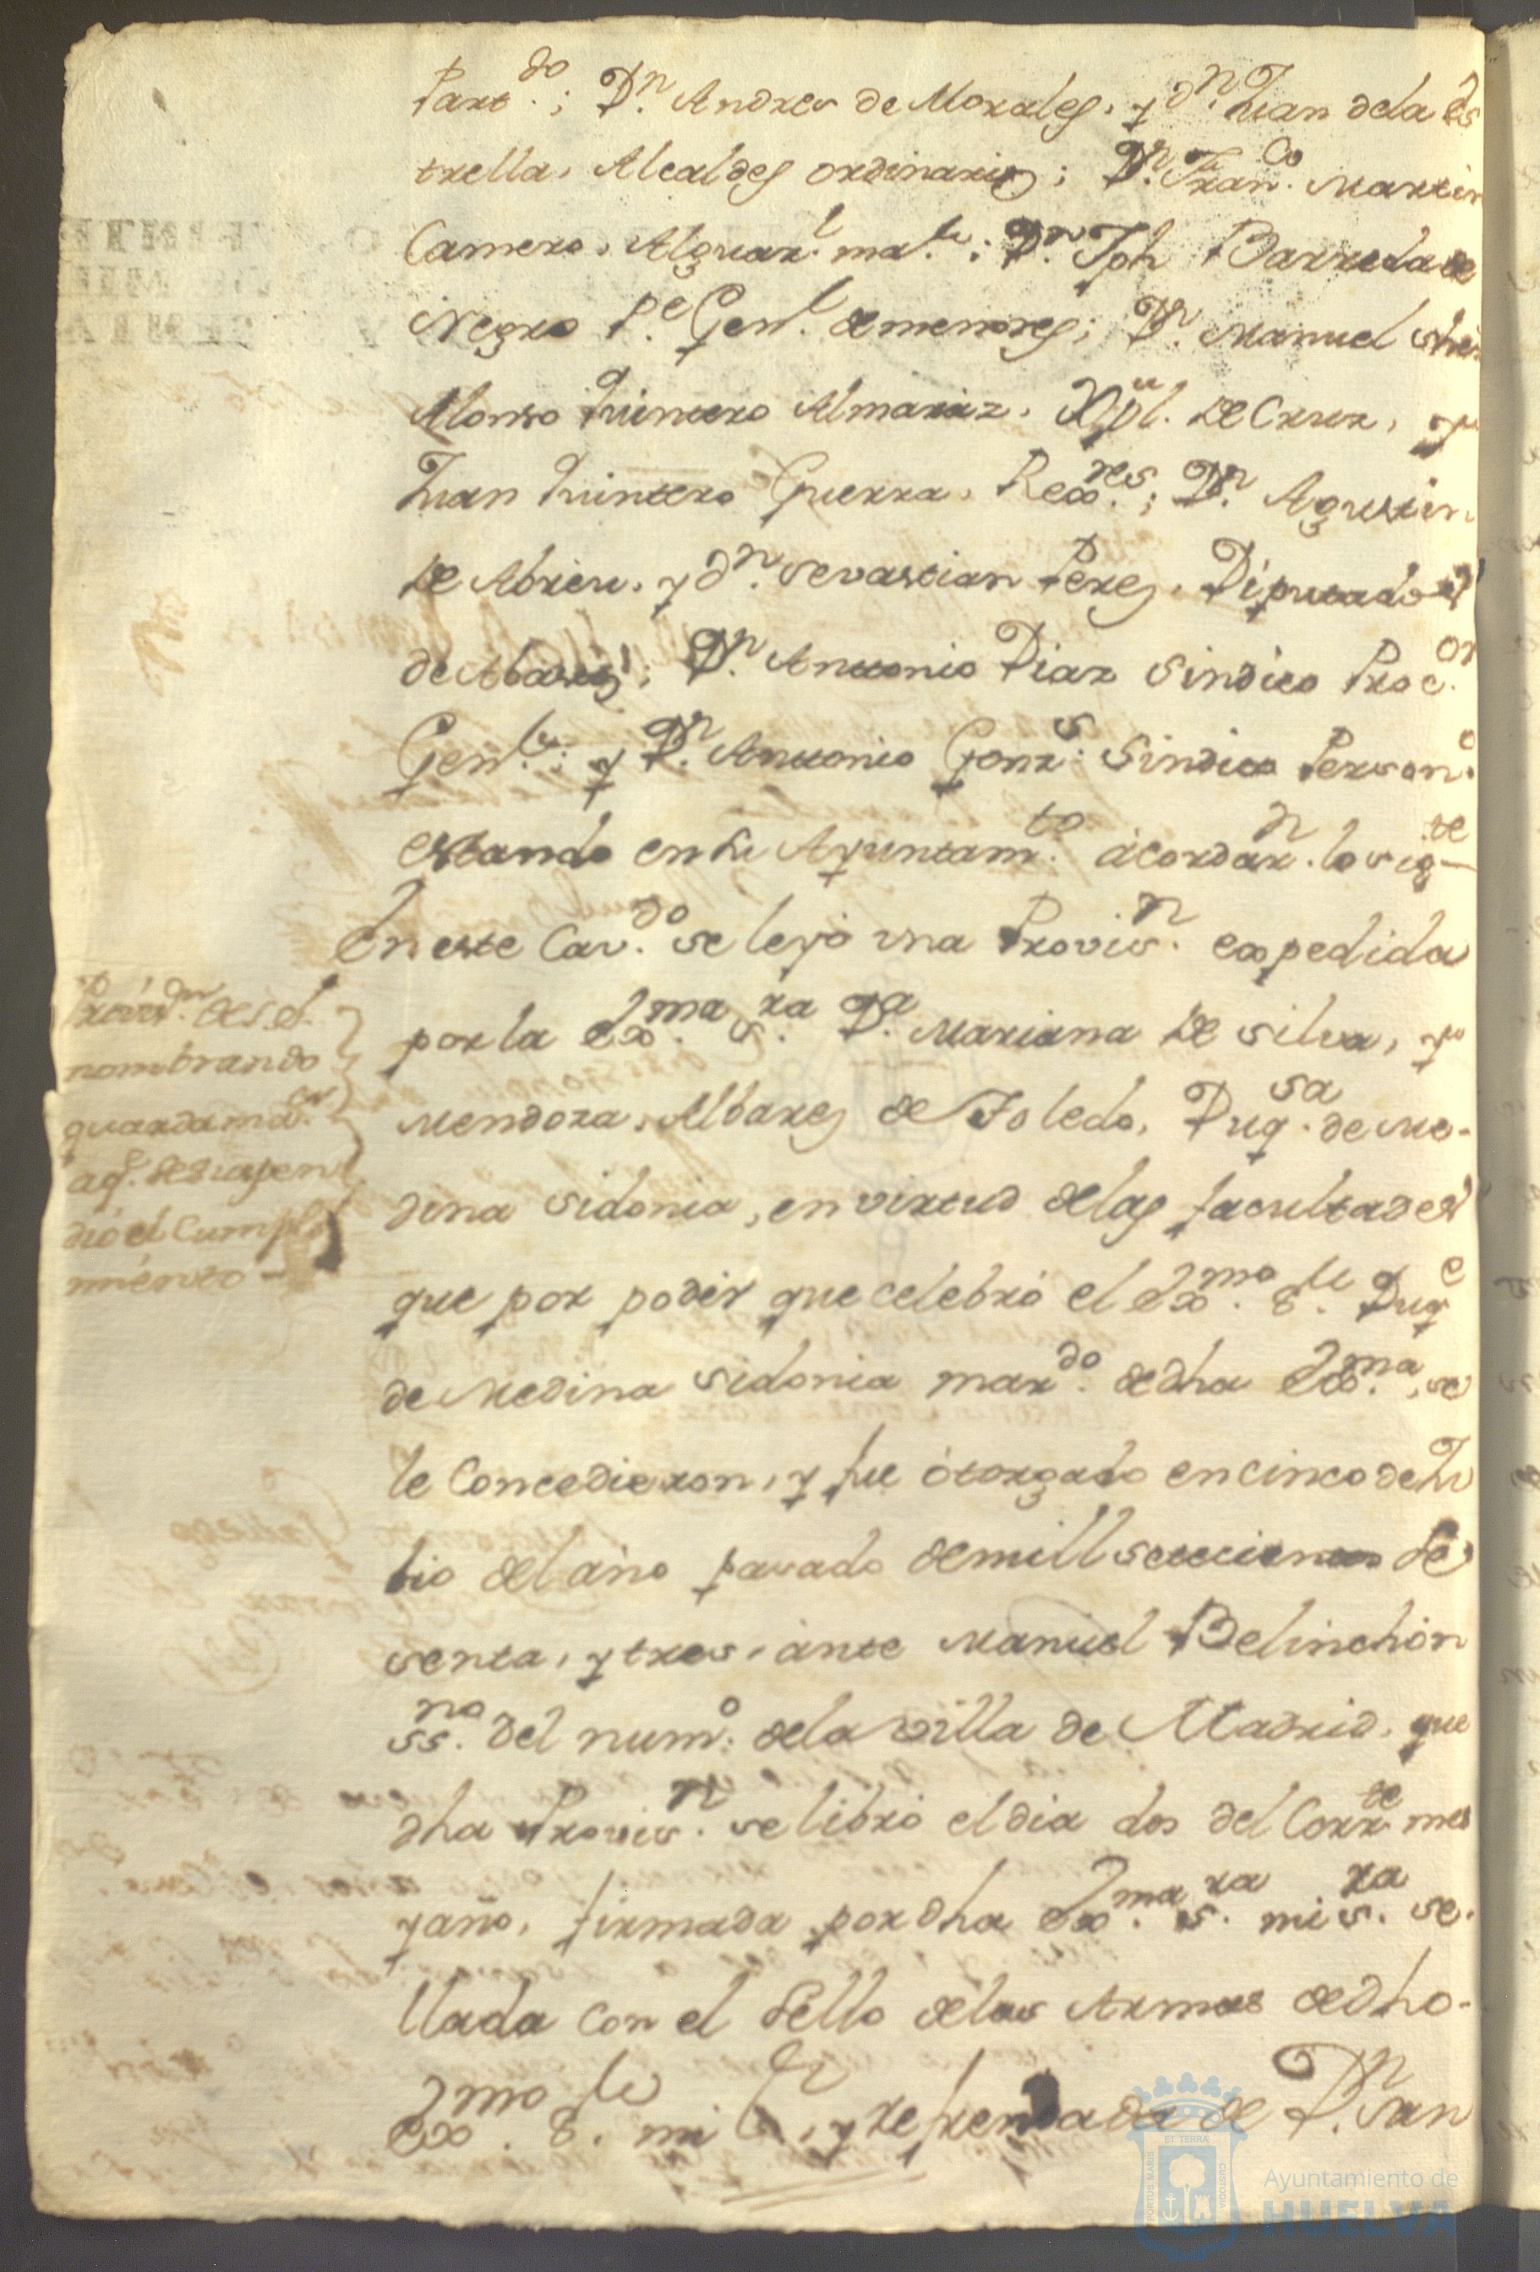 Part.do; Dn. Andres de Morales, y dn. Juan dela Es
trella, Alcaldes ordinarios; Dn. Franco. Martin
Camero, Alguazl. mar.; Dn. Jph Barreda de
Negro Pe. Genl. de menores; Dn. Manuel
Alonso Quintero Almaraz, Xptl. de Cruz, y
Juan Quintero Guerra, Rexres.; Dn. Agustin
de Abreu, y dn. Sevastian Perez, Diputados
de Abastos; Dn. Antonio Diaz Sindico Procor.
Genl.; y Dn. Antonio Gonzs. Sindico Person.o
estando en su Ayuntamto. acordarn. lo sigte
En este Cavdo. se leyó una Provisn. expedida
por la Exma. Sra. Da. Mariana de Silva, y
Mendoza, Albarez de Toledo, Duqsa. de Me-
dina Sidonia, en virtud delas facultades
que por poder que celebró el Exmo. Sr. Duqe
de Medina Sidonia mardo. de dha Exma., se
le Concedieron, y fue otorgado en cinco de Ju
lio del año pasado de mill setecientos se
senta, y tres, ante Manuel Belinchón
ssno. del numo. dela Villa de Madrid, que
dha Provisn. se libró el dia dos del Corrte mes
y año, firmada por dha Exma. Sra. mi Sra. se-
llada con el Sello delas Armas de dho-
Exmo. Sr. mi Sr., y refrendada de Dn. Juan
Provisn. de S.E.
nombrando
guarda mar.
a qe. se suspen
dió el Cumpli
miento
PORTUS MARIS
ET TERRÆ
CUSTODIA
Ayuntamiento de
HUELVA